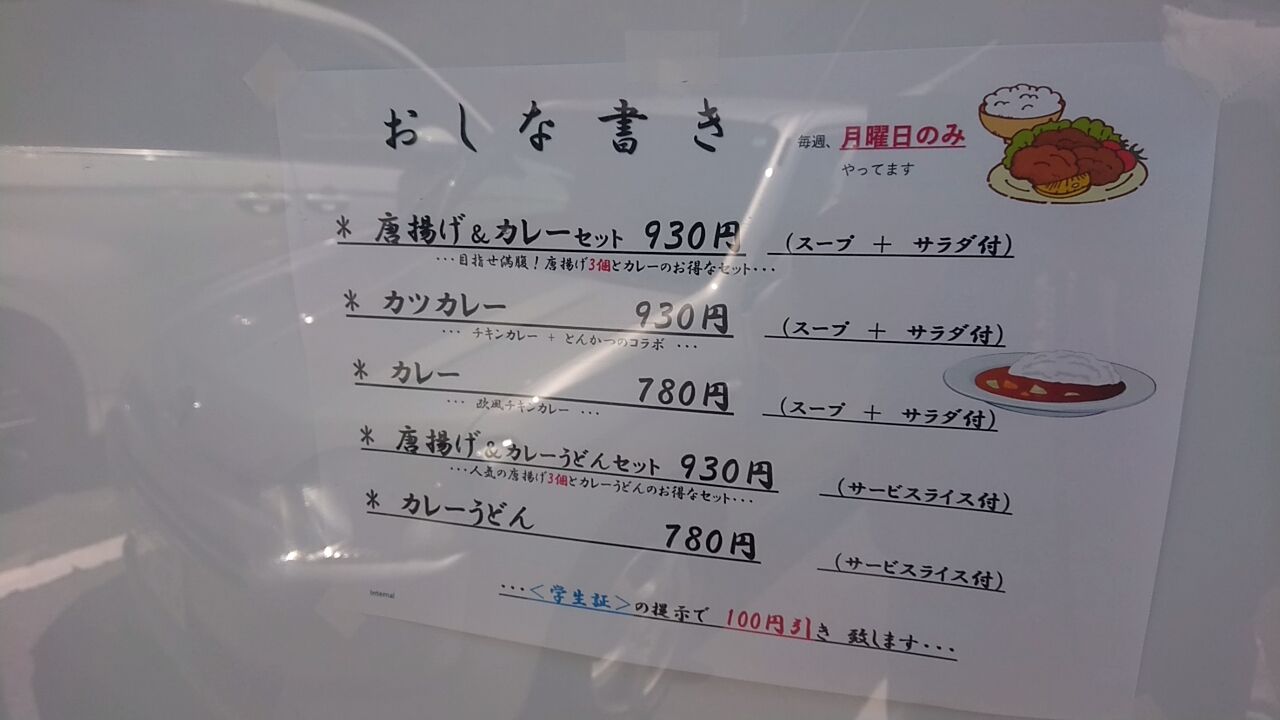 おしな書き
毎週、月曜日のみ
やってます
＊ 唐揚げ&カレーセット 930円 （スープ ＋ サラダ付）
･･･目指せ満腹！唐揚げ3個とカレーのお得なセット･･･
＊ カツカレー 930円 （スープ ＋ サラダ付）
･･･ チキンカレー + とんかつのコラボ ･･･
＊ カレー 780円 （スープ ＋ サラダ付）
･･･ 欧風チキンカレー ･･･
＊ 唐揚げ&カレーうどんセット 930円 （サービスライス付）
･･･人気の唐揚げ3個とカレーうどんのお得なセット･･･
＊ カレーうどん 780円 （サービスライス付）
･･･＜学生証＞の提示で 100円引き 致します･･･
Internal